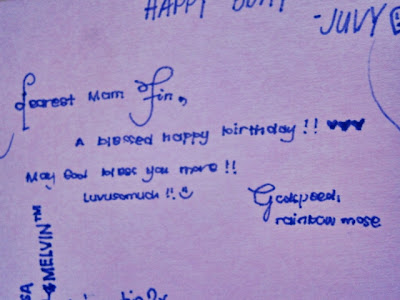 HAPPY BDAY
-JUVY
Dearest Mam Fin,
A blessed happy birthday!! ♥♥♥
May God bless you more!!
Luvusomuch!! :)
Godspeed,
rainbow mose
& MELVIN™